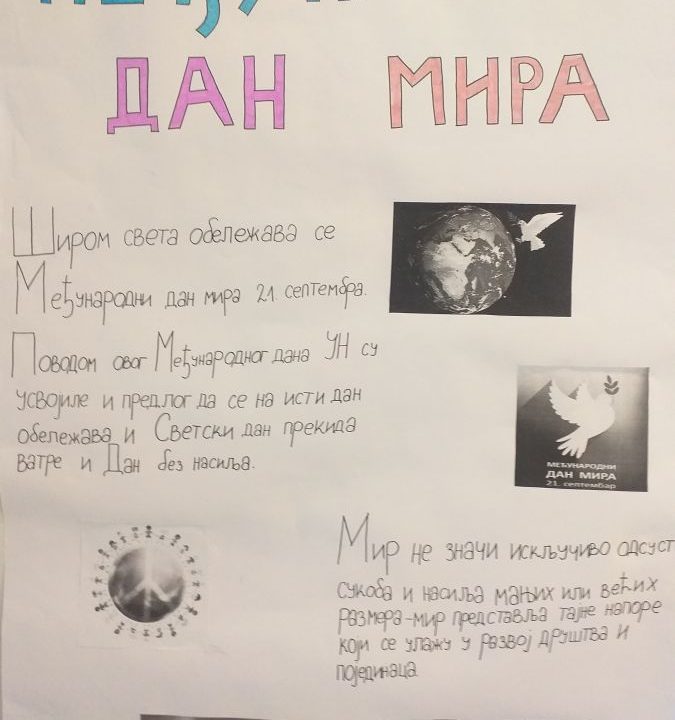 ДАН МИРА
Широм света обележава се
Међународни дан мира 21. септембра.
Поводом овог Међународног дана УН су
усвојиле и предлог да се на исти дан
обележава и Светски дан прекида
ватре и Дан без насиља.
МЕЂУНАРОДНИ
ДАН МИРА
21. септембар
Мир не значи искључиво одсуст
сукоба и насиља мањих или већих
размера-мир представља тајне напоре
који се улажу у развој друштва и
појединаца